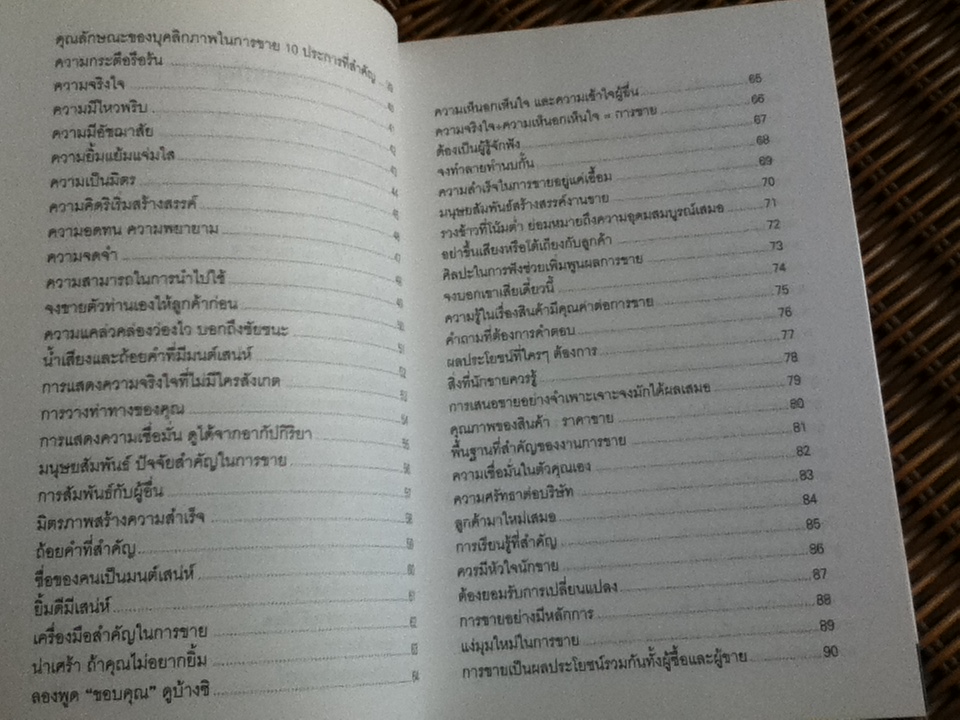 คุณลักษณะของบุคลิกภาพในการขาย 10 ประการที่สำคัญ 39
ความกระตือรือร้น 40
ความจริงใจ 41
ความมีไหวพริบ 42
ความมีอัชฌาสัย 43
ความยิ้มแย้มแจ่มใส
ความเป็นมิตร 44
ความคิดริเริ่มสร้างสรรค์ 45
ความอดทน ความพยายาม 46
ความจดจำ 47
ความสามารถในการนำไปใช้ 48
จงขายตัวท่านเองให้ลูกค้าก่อน 49
ความแคล่วคล่องว่องไว บอกถึงชัยชนะ 50
น้ำเสียงและถ้อยคำที่มีมนต์เสน่ห์ 51
การแสดงความจริงใจที่ไม่มีใครสังเกต 52
การวางท่าทางของคุณ 53
การแสดงความเชื่อมั่น ดูได้จากอากัปกิริยา 54
มนุษยสัมพันธ์ ปัจจัยสำคัญในการขาย 55
การสัมพันธ์กับผู้อื่น 56
มิตรภาพสร้างความสำเร็จ 57
ถ้อยคำที่สำคัญ 58
ชื่อของคนเป็นมนต์เสน่ห์ 59
ยิ้มดีมีเสน่ห์ 60
เครื่องมือสำคัญในการขาย 61
น่าเศร้า ถ้าคุณไม่อยากยิ้ม 62
ลองพูด “ขอบคุณ” ดูบ้างซิ 63
64
ความเห็นอกเห็นใจ และความเข้าใจผู้อื่น 65
ความจริงใจ+ความเห็นอกเห็นใจ = การขาย 66
ต้องเป็นผู้รู้จักฟัง 67
จงทำลายทำนบกั้น 68
ความสำเร็จในการขายอยู่แค่เอื้อม 69
มนุษยสัมพันธ์สร้างสรรค์งานขาย 70
รวงข้าวที่โน้มต่ำ ย่อมหมายถึงความอุดมสมบูรณ์เสมอ 71
อย่าขึ้นเสียงหรือโต้เถียงกับลูกค้า 72
ศิลปะในการฟังช่วยเพิ่มพูนผลการขาย 73
จงบอกเขาเสียเดี๋ยวนี้ 74
ความรู้ในเรื่องสินค้ามีคุณค่าต่อการขาย 75
คำถามที่ต้องการคำตอบ 76
ผลประโยชน์ที่ใครๆ ต้องการ 77
สิ่งที่นักขายควรรู้ 78
การเสนอขายอย่างจำเพาะเจาะจงมักได้ผลเสมอ 79
คุณภาพของสินค้า : ราคาขาย 80
พื้นฐานที่สำคัญของงานการขาย 81
ความเชื่อมั่นในตัวคุณเอง 82
ความศรัทธาต่อบริษัท 83
ลูกค้ามาใหม่เสมอ 84
การเรียนรู้ที่สำคัญ 85
ควรมีหัวใจนักขาย 86
ต้องยอมรับการเปลี่ยนแปลง 87
การขายอย่างมีหลักการ 88
แง่มุมใหม่ในการขาย 89
การขายเป็นผลประโยชน์รวมกันทั้งผู้ซื้อและผู้ขาย 90